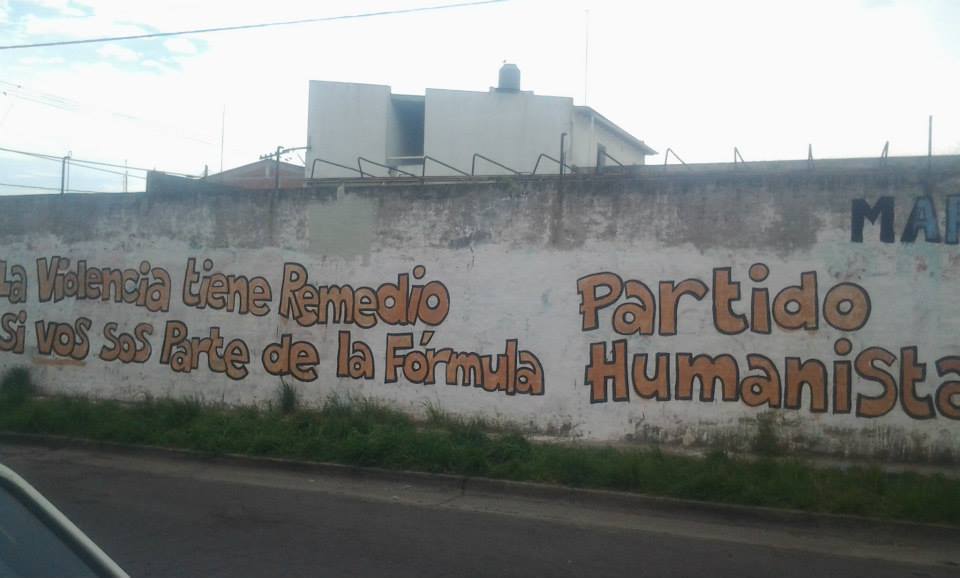 La Violencia tiene Remedio
Si vos sos Parte de la Fórmula
Partido
Humanista